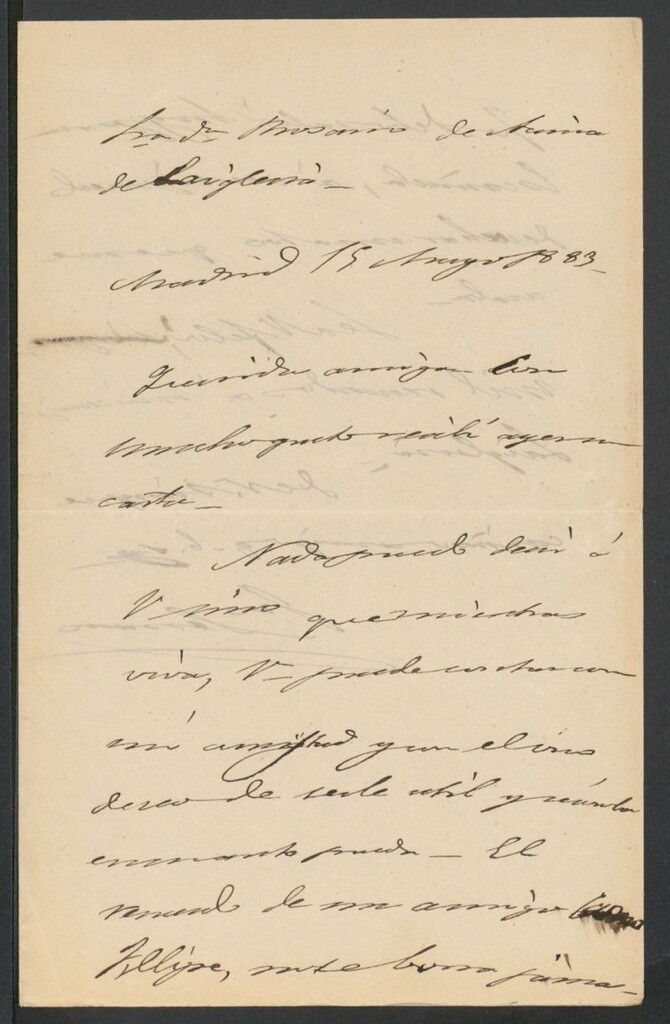 Sra Dna Rosario de Acuña
de Laiglesia
Madrid 15 Mayo 1883
Querida amiga Con
mucho gusto recibí ayer su
carta
Nada puedo decir á
V sino que mientras
viva, V puede contar con
mi amistad y con el vivo
deseo de serle útil y
en cuanto pueda — El
recuerdo de un amigo como
Felipe, no se borra jamá-